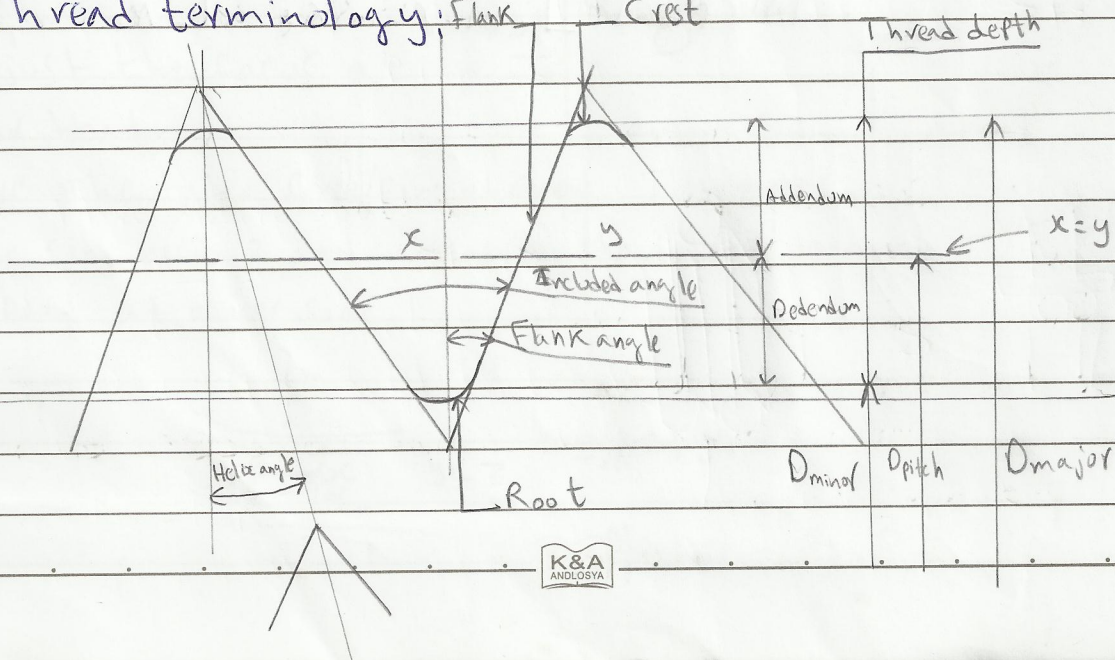 hread terminology:
Flank
Crest
Thread depth
Addendum
x
y
x=y
Included angle
Dedendum
Flank angle
Helix angle
Dminor
Dpitch
Dmajor
Root
K&A
ANDLOSYA